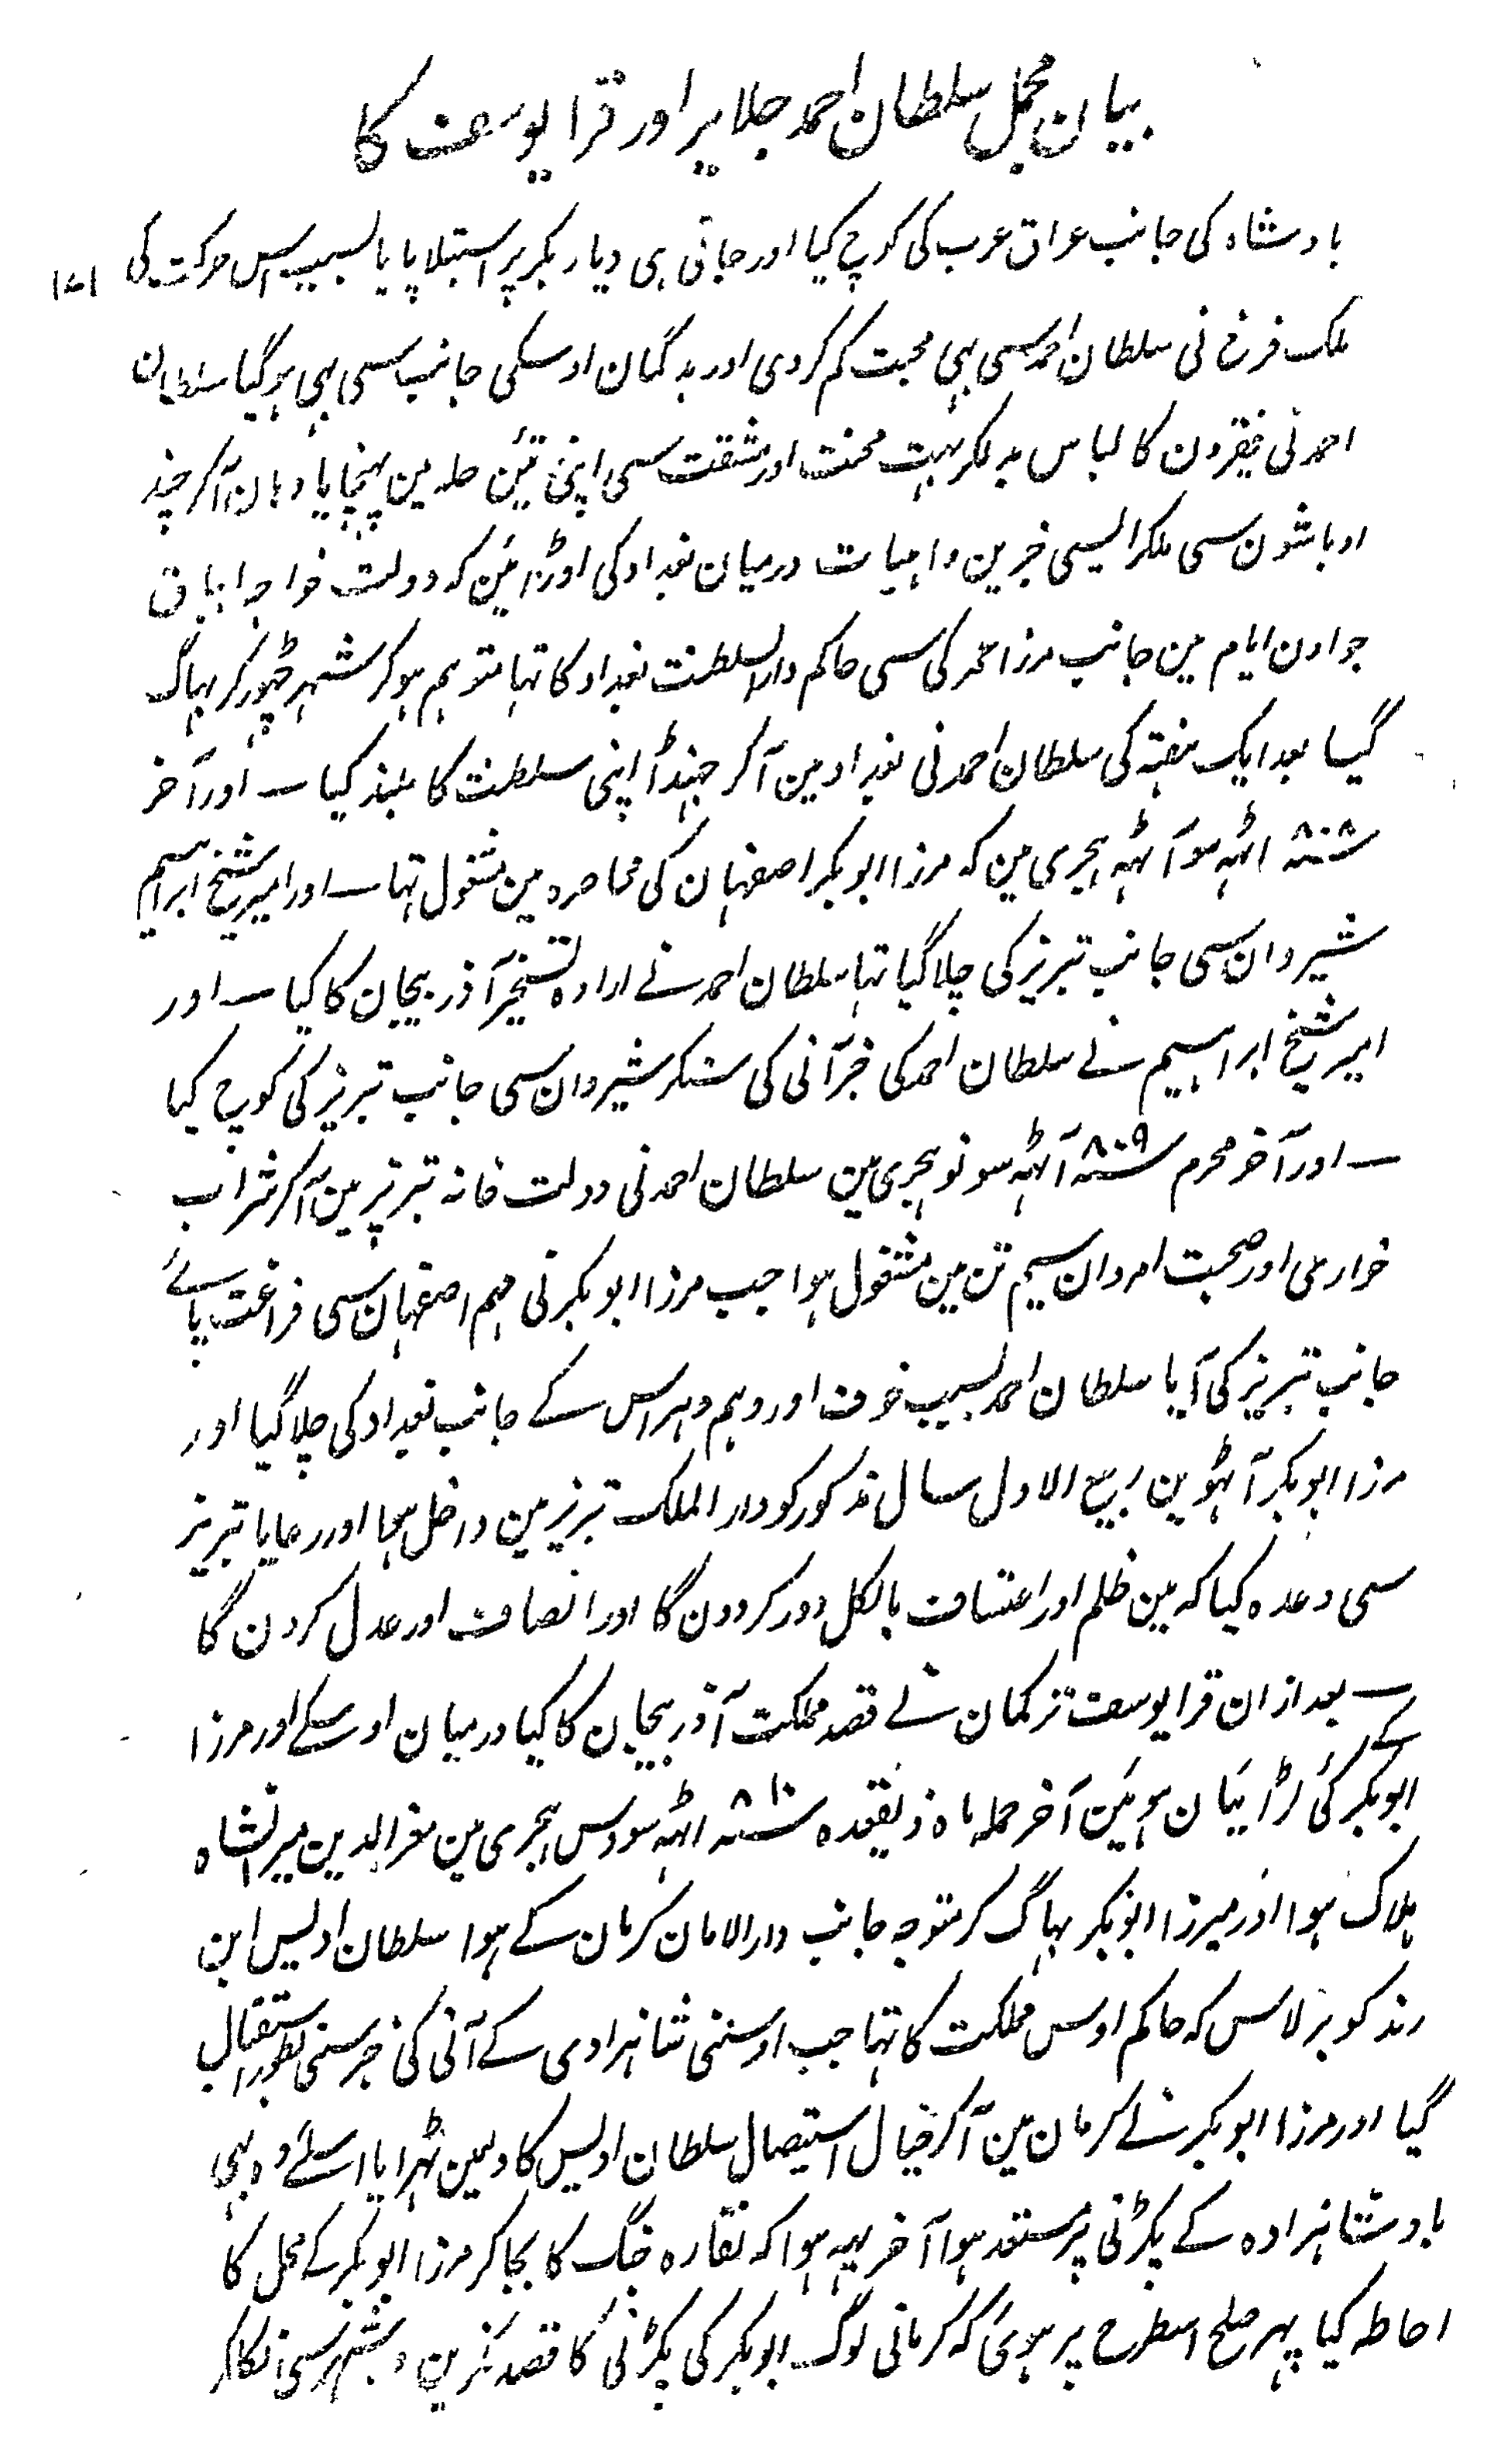 بیان مجمل سلطان احمد جلایر اور قرا یوسف کا
بادشاہ کی جانب عراق عرب کی کوچ کیا اور جاتی ہی دیار بکر پر استیلا پایا بسبب اس حرکت کی
ملک فرخ نی سلطان احمد سی بہی محبت کم کر دی اور بد گمان اوسکی جانب سی بہی ہو گیا سلطان
احمد نی فقیرون کا لباس بدلکر بہت محنت اور مشقت سی اپنی تئین حلہ مین پہنچایا وہان آکر چند
اوباشون سی ملکر ایسی خبرین واہیات درمیان بغداد کی اوڑائین کہ دولت خواجہ ایناق
جو اون ایام مین جانب مرزا عمر کی سی حاکم دار السلطنت بغداد کا تہا متوہم ہو کر شہر چہوڑ کر بہاگ
گیا بعد ایک ہفتہ کی سلطان احمد نی بغداد مین آکر جہنڈا اپنی سلطنت کا بلند کیا ۔ اور آخر
سنہ ۸۰۸ اٹہہ سو آٹہہ ہجری مین کہ مرزا ابوبکر اصفہان کی محاصرہ مین مشغول تہا ۔ اور امیر شیخ ابراہیم
شیروان سی جانب تبریز کی چلا گیا تہا سلطان احمد نے ارادہ تسخیر آذربیجان کا کیا ۔ اور
امیر شیخ ابراہیم نے سلطان احمد کی خبر آنی کی سنکر شیروان سی جانب تبریز کی کوچ کیا
۔ اور آخر محرم سنہ ۸۰۹ آٹہہ سو نو ہجری مین سلطان احمد نی دولت خانہ تبریز مین آکر شراب
خواری اور صحبت امردان سیم تن مین مشغول ہوا جب مرزا ابوبکر نی مہم اصفہان سی فراغت پائے
جانب تبریز کی آیا سلطان احمد بسبب خوف اور وہم و ہراس کے جانب بغداد کی چلا گیا اور
مرزا ابوبکر آٹہوین ربیع الاول سال مذکور کو دار الملک تبریز مین داخل ہوا اور رعایا تبریز
سی وعدہ کیا کہ مین ظلم اور اعتساف بالکل دور کر دون گا اور انصاف اور عدل کرون گا
۔ بعد ازان قرا یوسف ترکمان نے قصد مملکت آذربیجان کا کیا درمیان اوسکے اور مرزا
ابوبکر کے کئی لڑائیان ہوئین آخر حملہ ماہ ذیقعدہ سنہ ۸۱۰ اٹہہ سو دس ہجری مین معز الدین میرانشاہ
ہلاک ہوا اور میرزا ابوبکر بہاگ کر متوجہ جانب دار الامان کرمان کے ہوا سلطان اویس ابن
ایدکو برلاس کہ حاکم اوس مملکت کا تہا جب اوسنی شاہزادی کے آنی کی خبر سنی بطور استقبال
گیا اور مرزا ابوبکر نے کرمان مین آکر خیال استیصال سلطان اویس کا دلمین ٹہرایا اسلئے وہ بہی
بادشاہزادہ کے پکڑنی پر مستعد ہوا آخر یہہ ہوا کہ نقارہ جنگ کا بجا کر مرزا ابوبکر کے محل کا
احاطہ کیا پہر صلح اسطرح پر ہوئی کہ کرمانی لوگ ابوبکر کی پکڑنی کا قصد نکرین شہر سی نکالکر